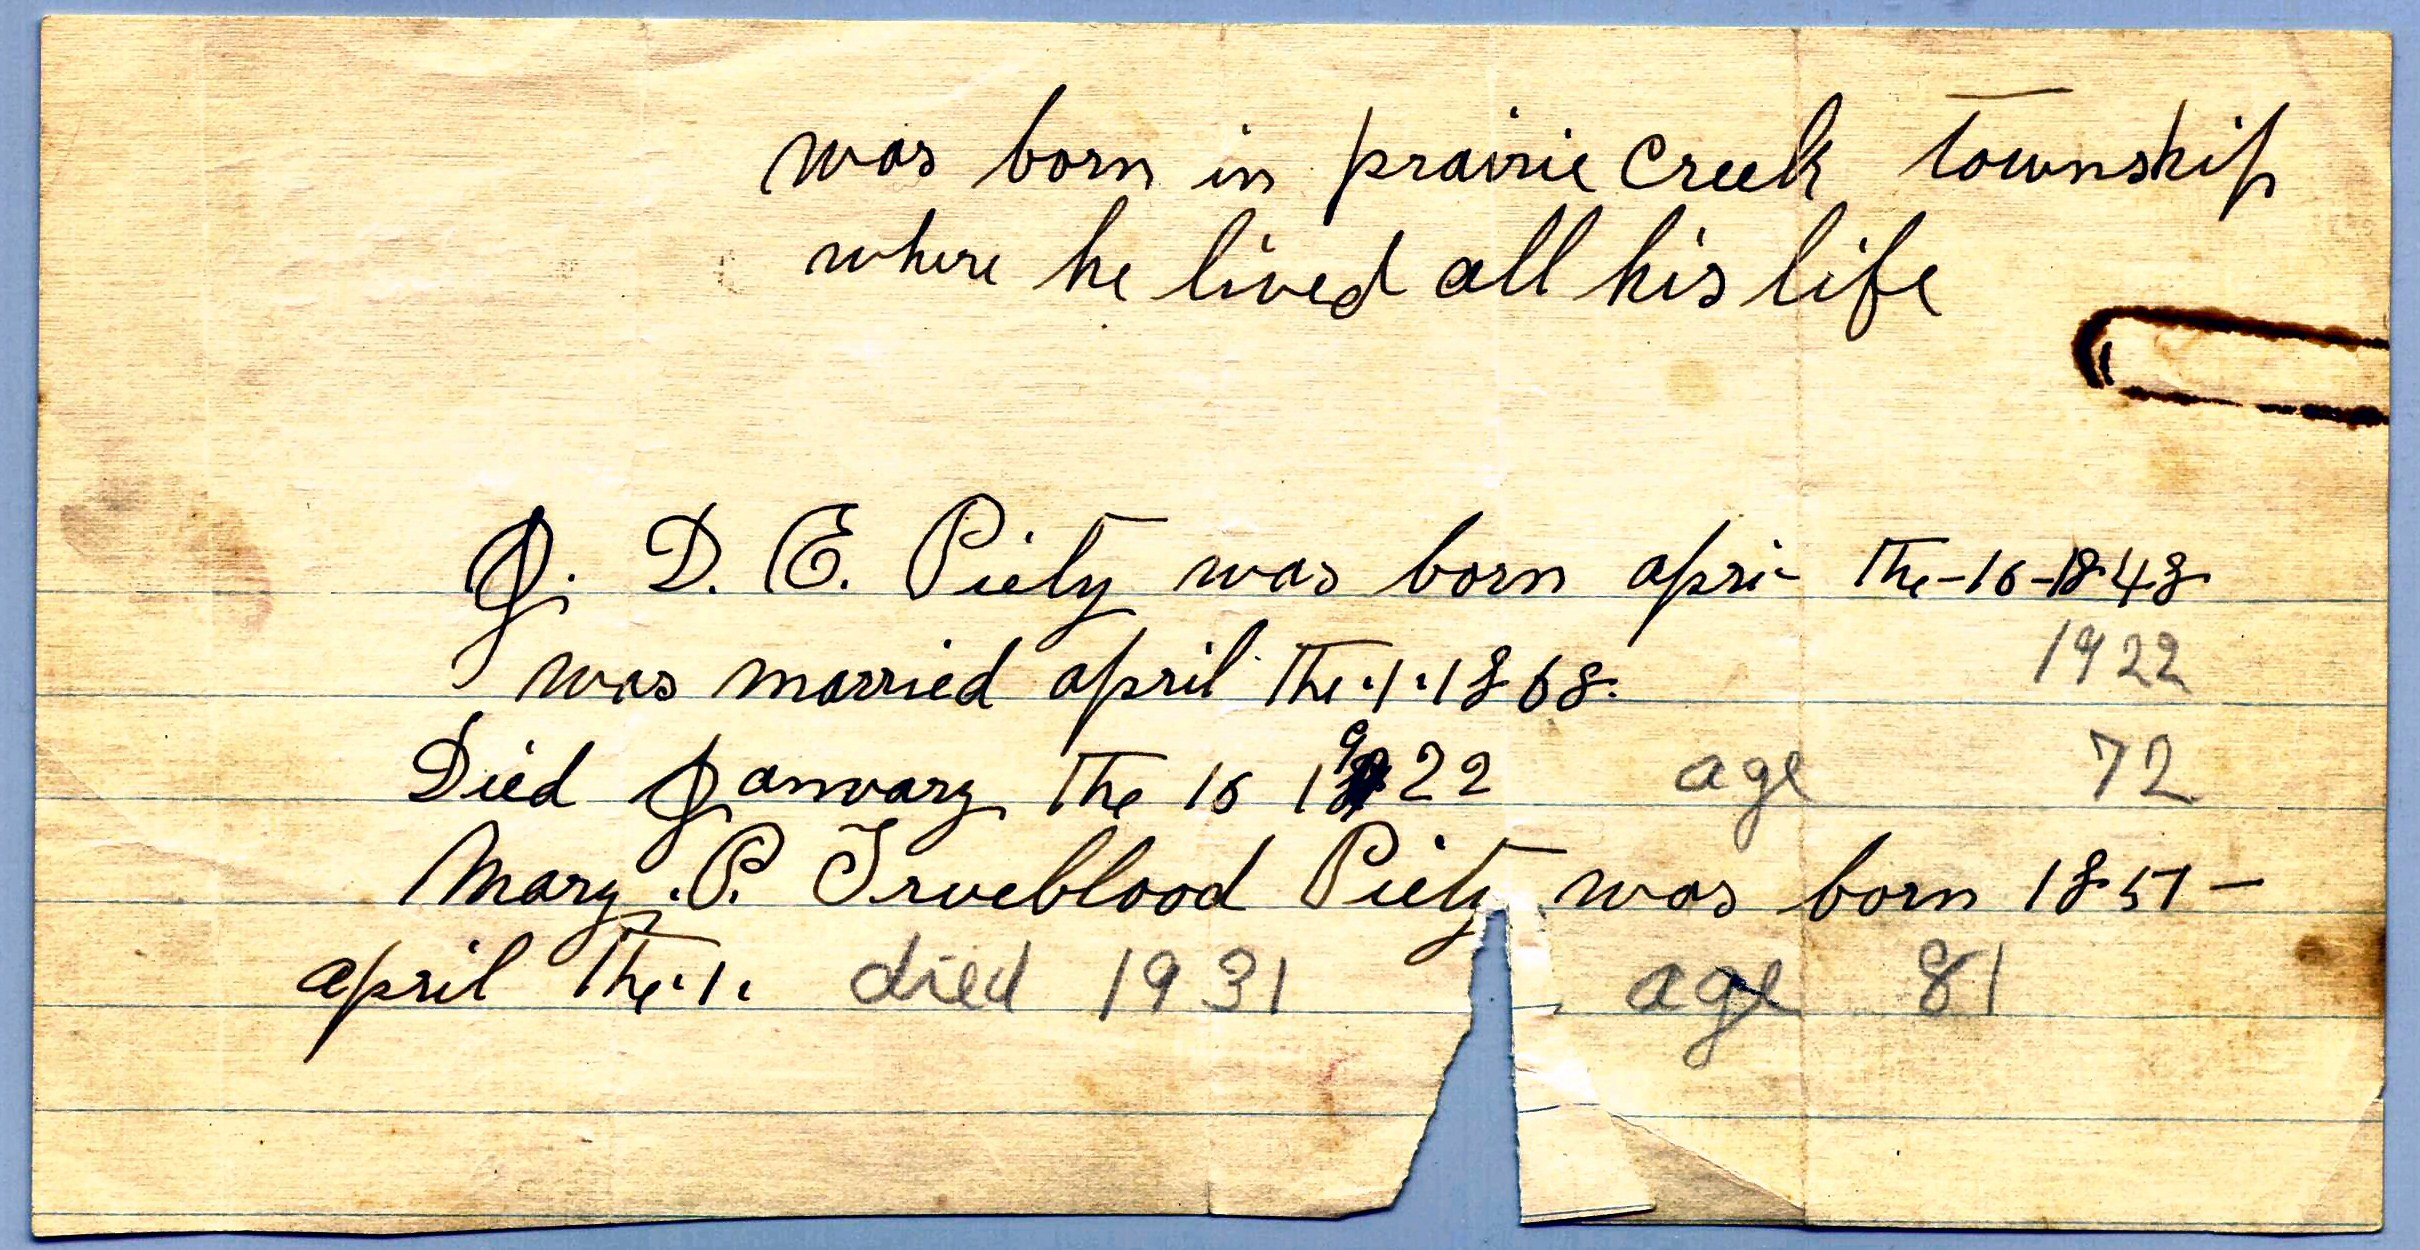 was born in prairie Creek Township
where he lived all his life
J. D. E. Piety was born apri- The-16-1848
was married april The.1.1868. 1922
Died January The 16 1922 age 72
Mary .P. Trueblood Piety was born 1851-
april The.1. died 1931 age 81